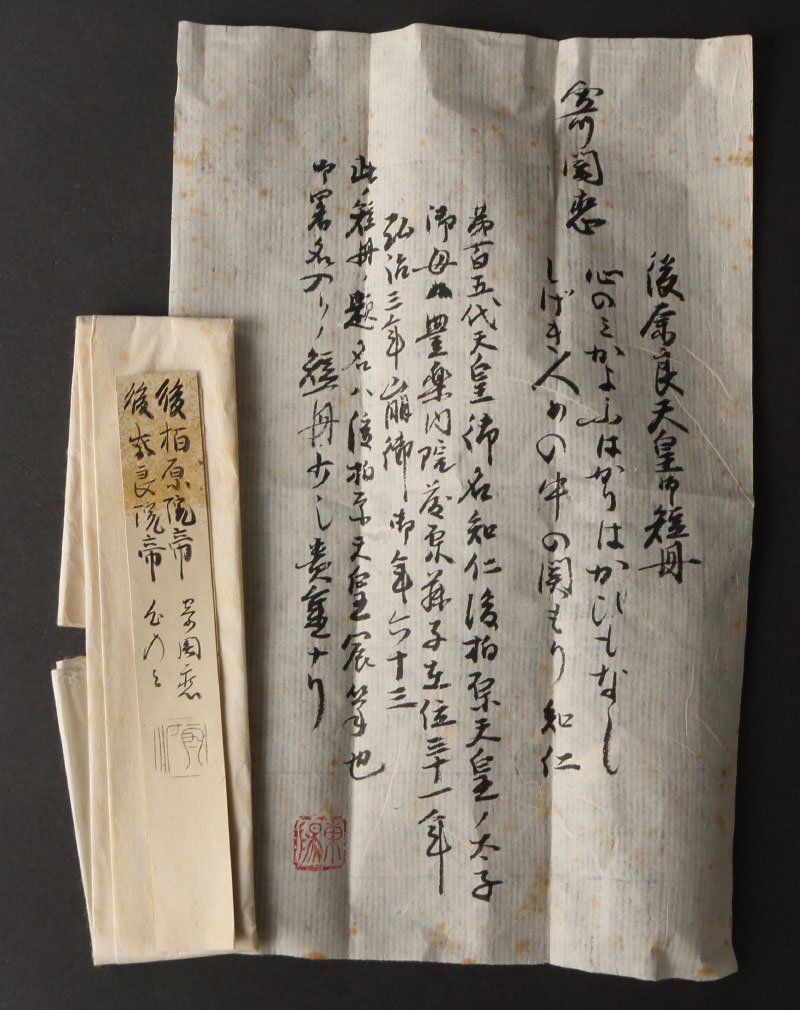 後奈良天皇御短冊
寄関恋
心のミかよふはかりはかひもなし
しげき人めの中の関もり 知仁
第百五代天皇御名知仁後柏原天皇ノ太子
御母ハ豊楽門院藤原藤子在位三十一年
弘治三年崩御御年六十三
此ノ短冊ノ題名ハ後柏原天皇宸筆也
御署名入リノ短冊少シ貴重ナリ
後柏原院帝 寄関恋
後奈良院帝 心のミ